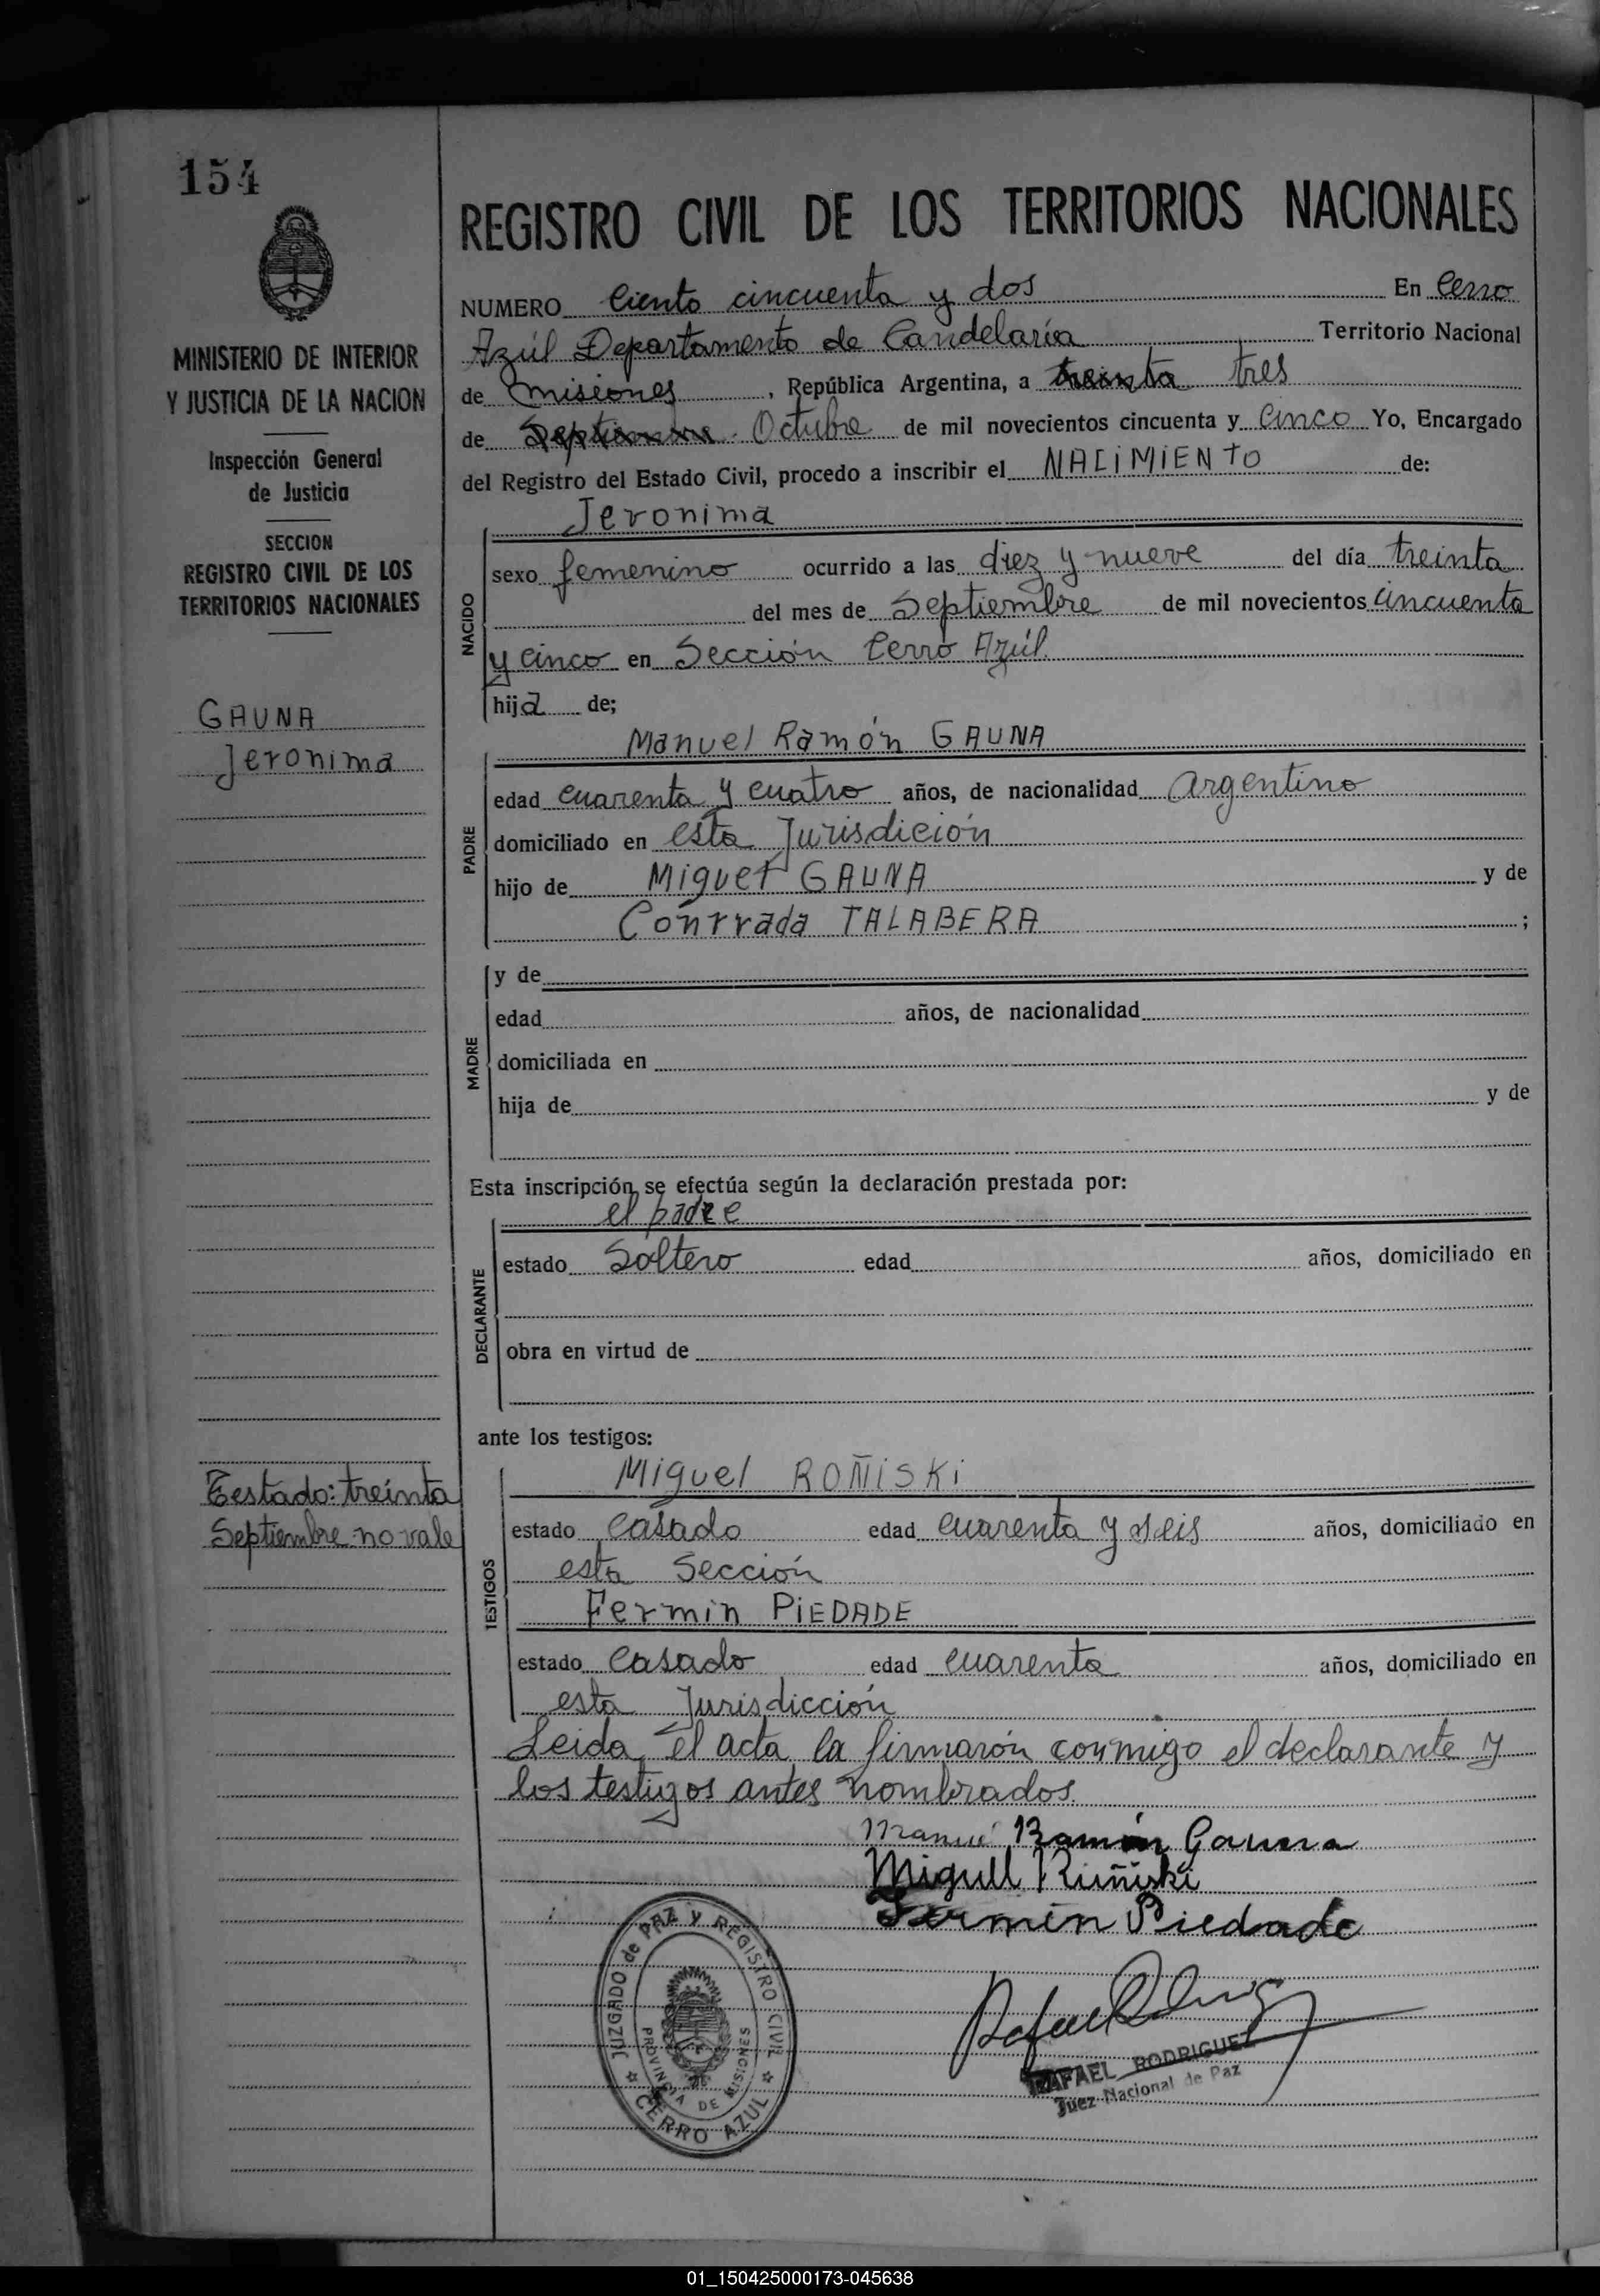 154
MINISTERIO DE INTERIOR
Y JUSTICIA DE LA NACION
Inspección General
de Justicia
SECCION
REGISTRO CIVIL DE LOS
TERRITORIOS NACIONALES
GAUNA
Jeronima
Testado: treinta
Septiembre no vale
REGISTRO CIVIL DE LOS TERRITORIOS NACIONALES
NUMERO Ciento cincuenta y dos En Cerro
Azúl Departamento de Candelaria Territorio Nacional
de Misiones, República Argentina, a treinta tres
de Septiembre Octubre de mil novecientos cincuenta y Cinco Yo, Encargado
del Registro del Estado Civil, procedo a inscribir el NACIMIENTO de:
NACIDO
Jeronima
sexo femenino ocurrido a las diez y nueve del día treinta
del mes de Septiembre de mil novecientos cincuenta
y cinco en Sección Cerro Azúl
hija de;
PADRE
Manuel Ramón GAUNA
edad cuarenta y cuatro años, de nacionalidad argentino
domiciliado en esta Jurisdición
hijo de Miguel GAUNA y de
Conrrada TALABERA ;
MADRE
y de
edad años, de nacionalidad
domiciliada en
hija de y de
Esta inscripción se efectúa según la declaración prestada por:
DECLARANTE
el padre
estado Soltero edad años, domiciliado en
obra en virtud de
ante los testigos:
TESTIGOS
Miguel ROÑISKI
estado Casado edad cuarenta y seis años, domiciliado en
esta Sección
Fermin PIEDADE
estado Casado edad cuarenta años, domiciliado en
esta Jurisdicción
Leida el acta la firmarón conmigo el declarante y
los testigos antes nombrados.
Ramón Gauna
Miguel Ruñiski
Fermin Piedade
JUZGADO de PAZ y REGISTRO CIVIL
PROVINCIA DE MISIONES
CERRO AZUL
RAFAEL RODRIGUEZ
Juez Nacional de Paz
01_150425000173-045638